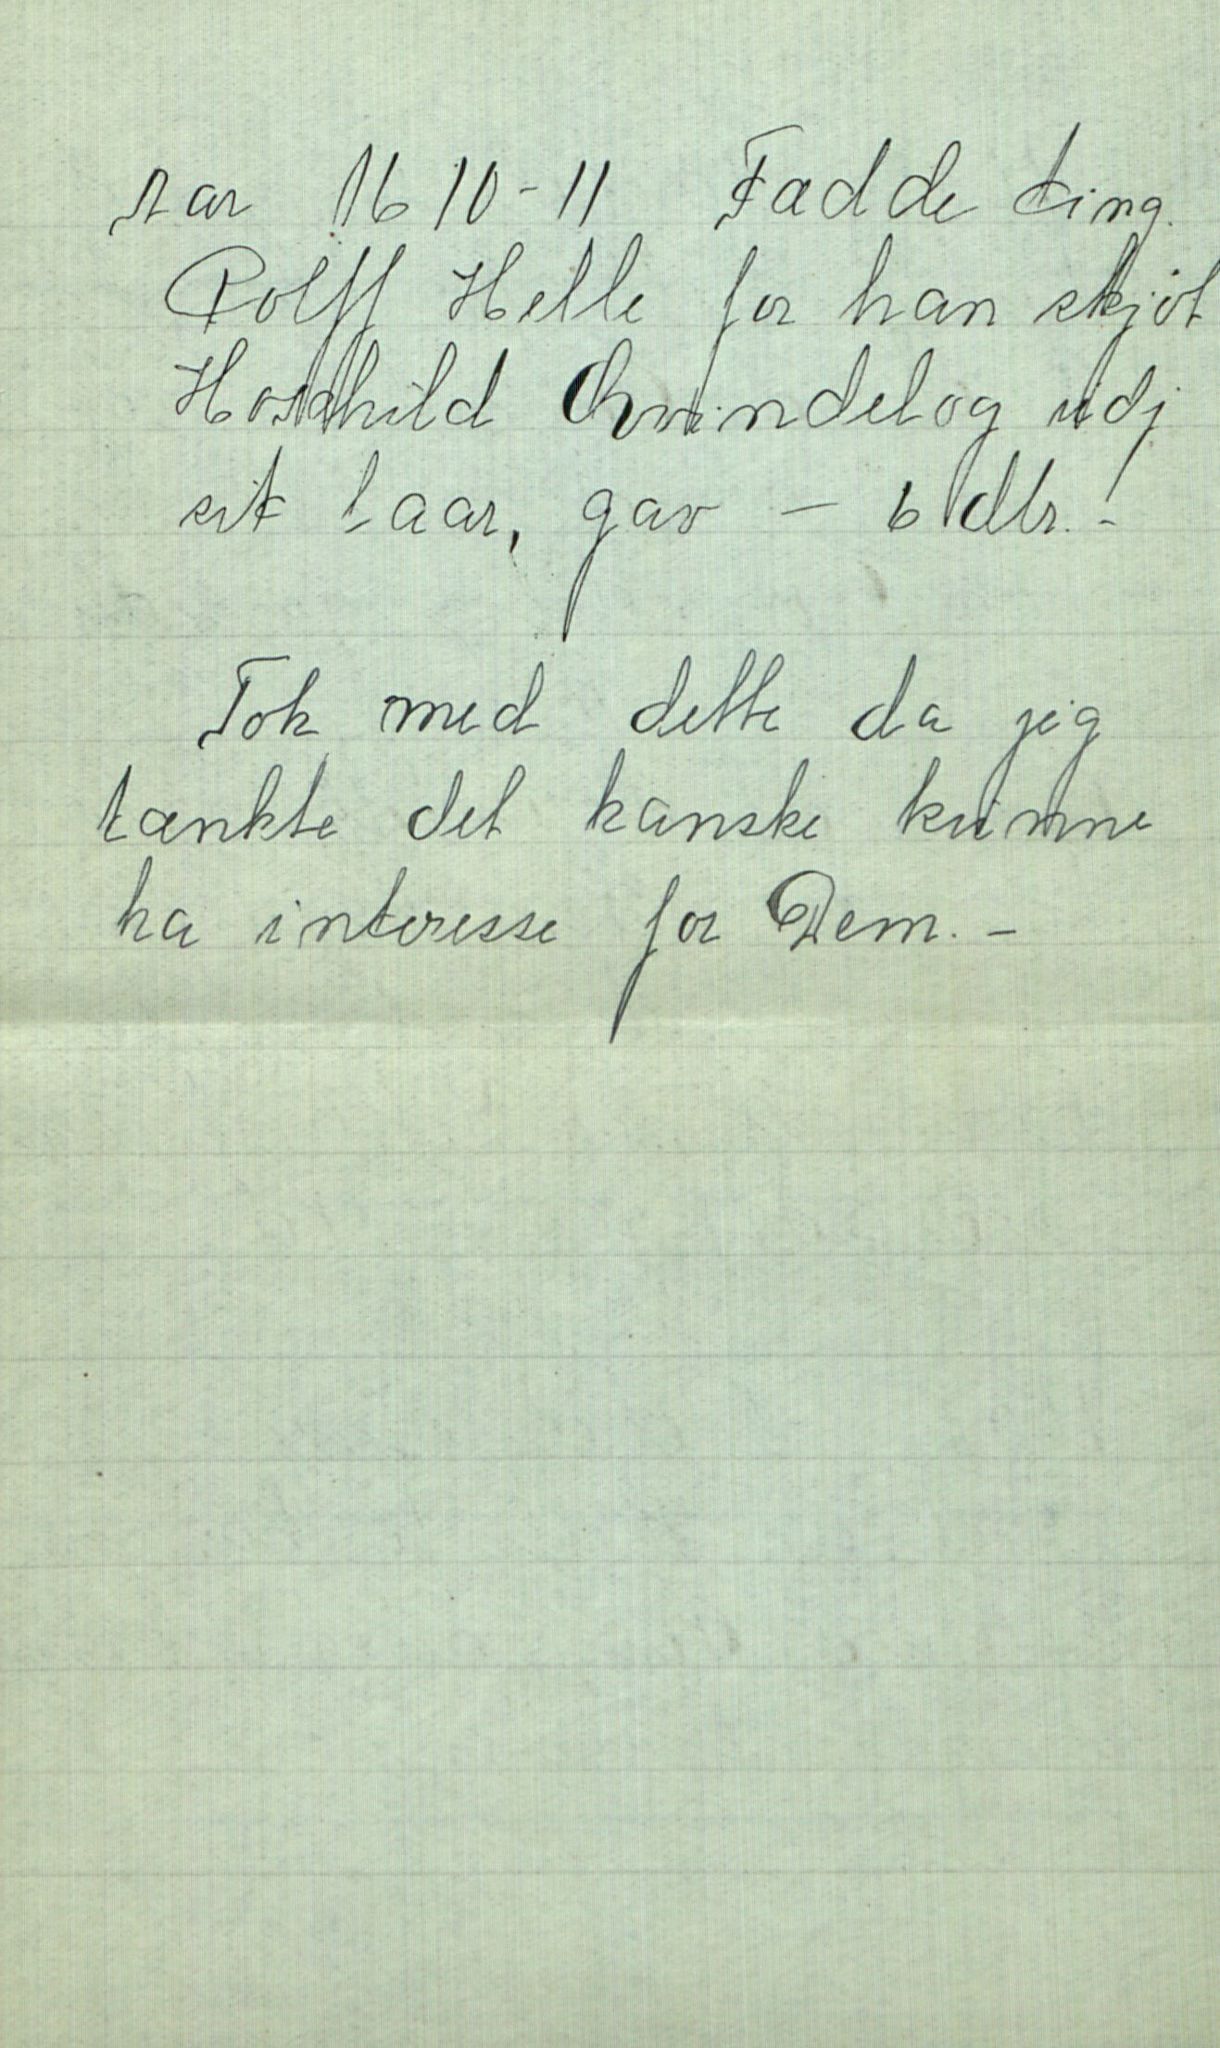 rar 1610-11 Fadde ting.
Rolff Helle for han skjöt
Horshild Qvindelog udj
sit Laar, gav — 6 dlr.! -
Tok med dette da jeg
tænkte det kanske kunne
ha interesse for Dem. -